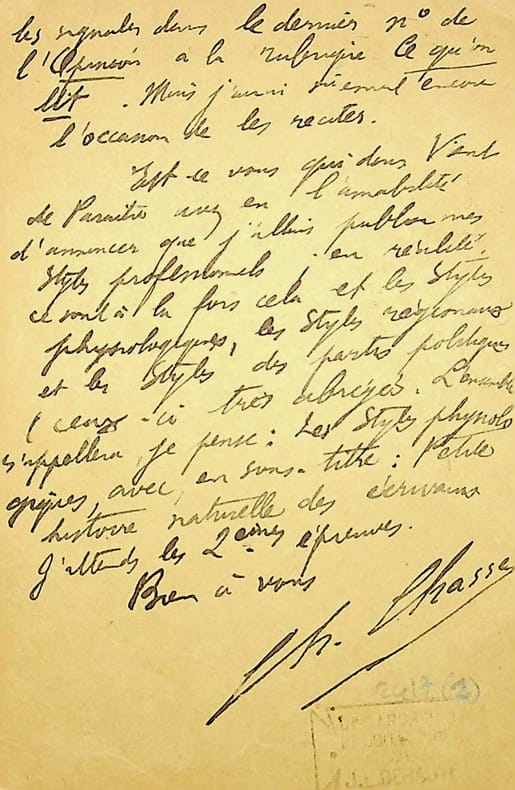 les signales dans le dernier n° de
l'Opinion à la rubrique Ce qu'on
lit. Mais j'aurai sûrement encore
l'occasion de les reciter.
Est-ce vous qui dans Vient
de Paraître avez eu l'amabilité
d'annoncer que j'allais publier mes
Styles professionnels ; en réalité,
ce sont à la fois cela et les Styles
physiologiques, les Styles régionaux
et les Styles des partis politiques
(ceux-ci très abrégés. L'ensemble
s'appellera, je pense : Les Styles physiolo
giques, avec, en sous-titre : Petite
histoire naturelle des écrivains
J'attends les 2èmes épreuves.
Bien à vous
Ch. Chassé
2417 (2)